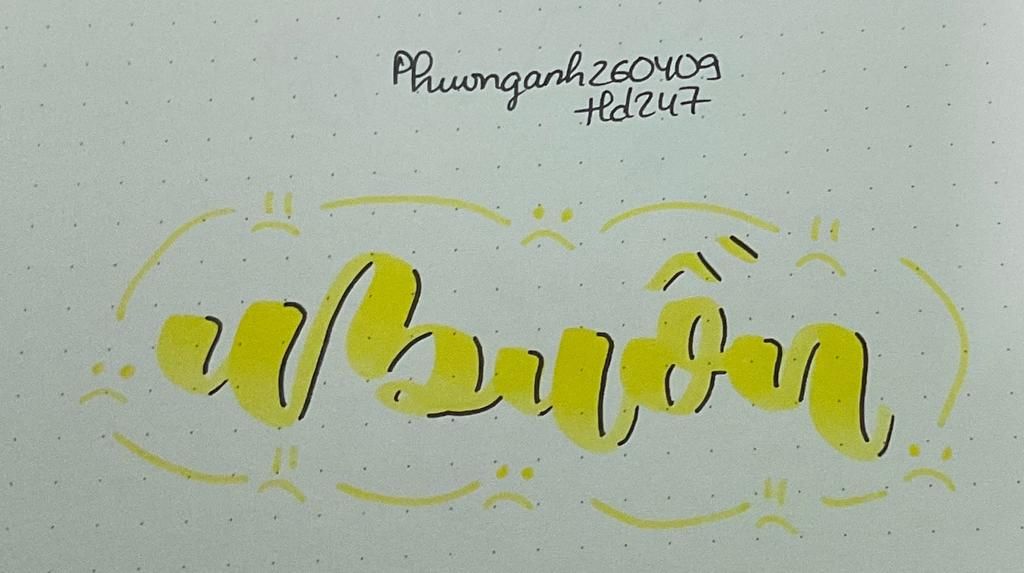 Phuonganh260409
tld247
buồn